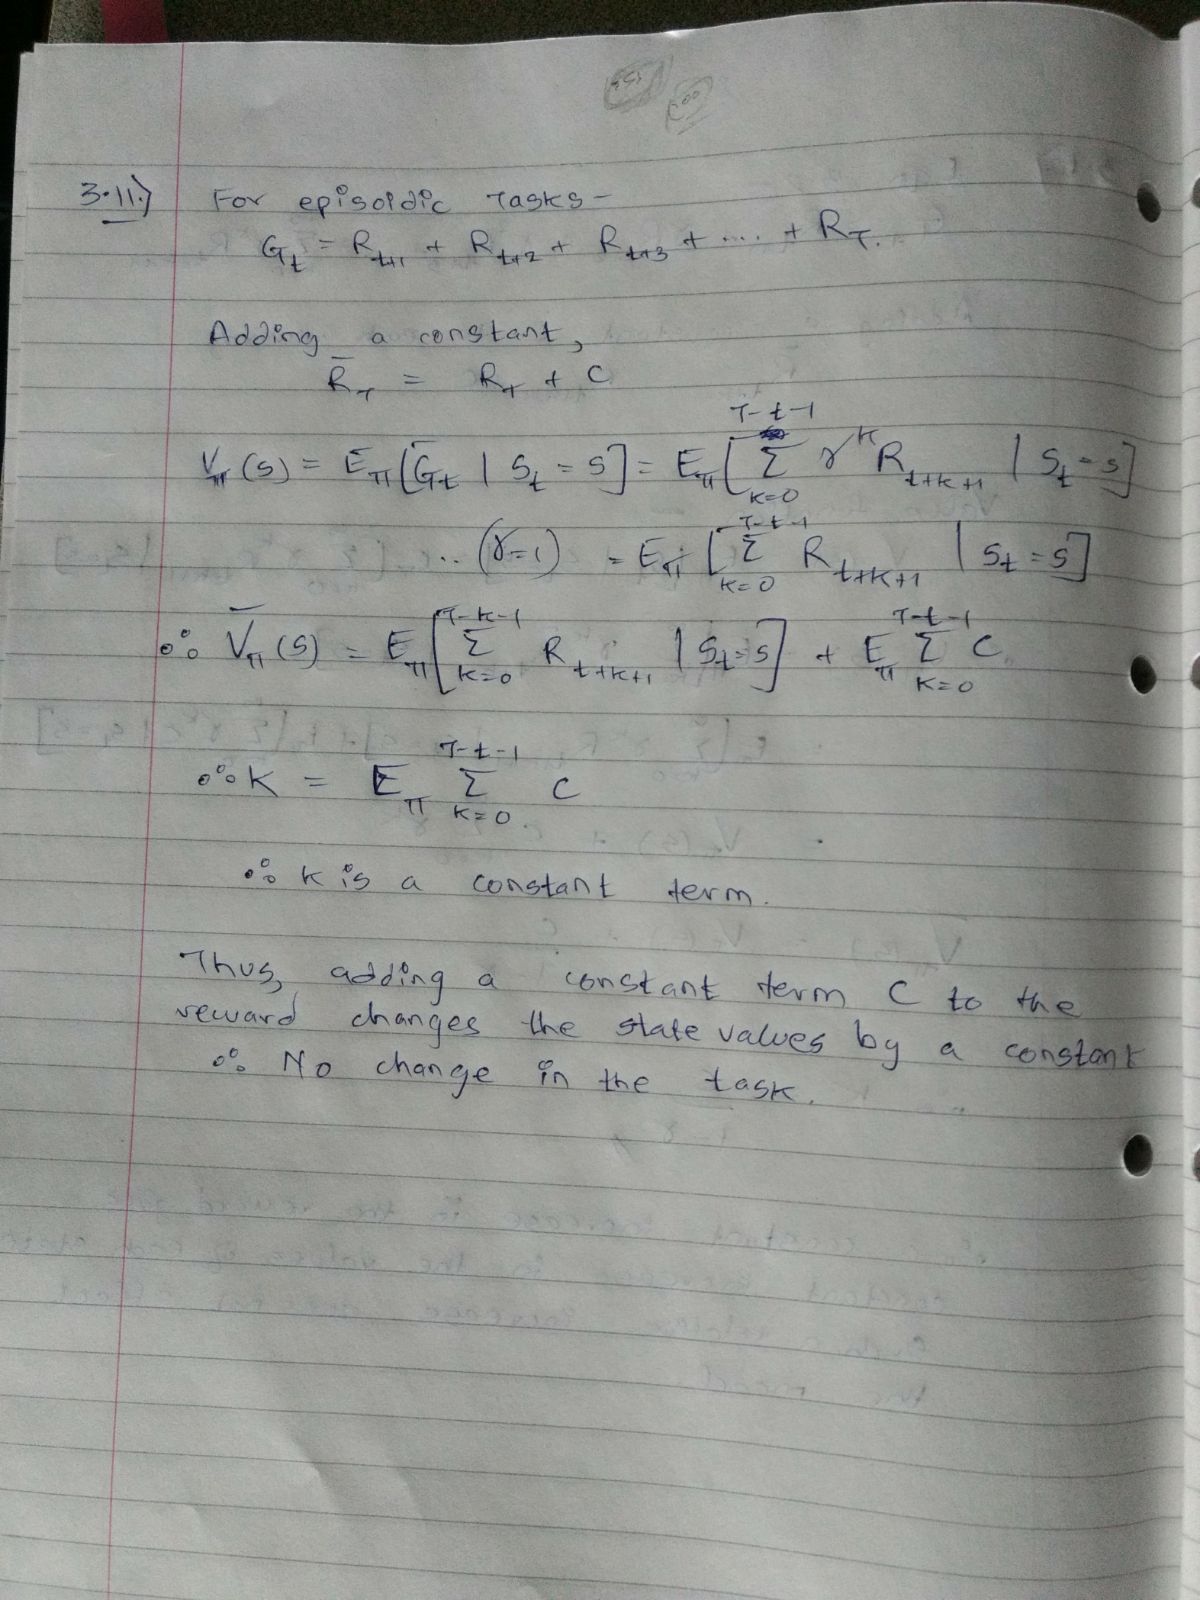 3.11.) For episoidic Tasks -
G_t = R_{t+1} + R_{t+2} + R_{t+3} + .... + R_T.
Adding a constant,
R̄_T = R_T + C
V_π(s) = E_π[Ḡ_t | S_t = s] = E_π[Σ_{k=0}^{T-t-1} γ^k R_{t+k+1} | S_t = s]
... (γ=1) = E_π[Σ_{k=0}^{T-t-1} R_{t+k+1} | S_t = s]
∴ V̄_π(s) = E_π[Σ_{k=0}^{T-k-1} R_{t+k+1} | S_t = s] + E_π Σ_{k=0}^{T-t-1} C
∴ K = E_π Σ_{k=0}^{T-t-1} C
∴ K is a constant term.
Thus, adding a constant term C to the
reward changes the state values by a constant
∴ No change in the task.